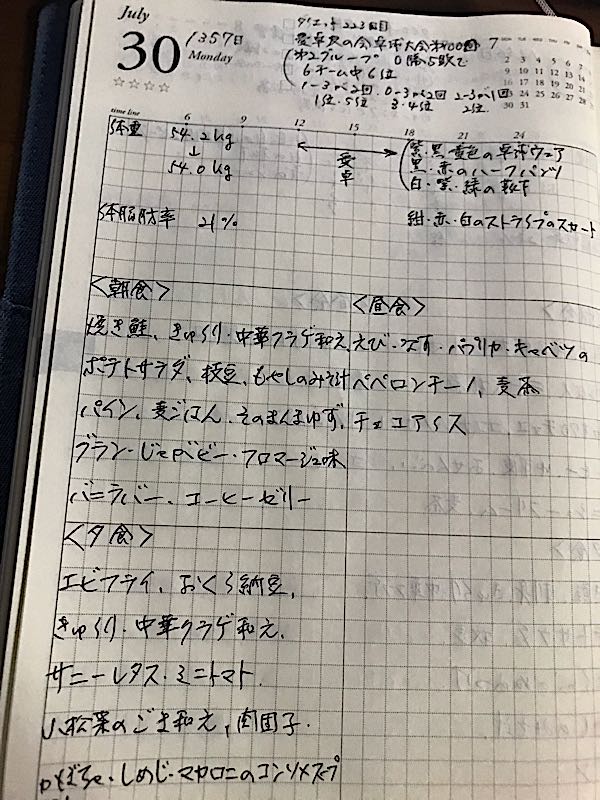 July
30
1357日
Monday
ダイエット223日目
愛卓友の会卓球大会第100回
第2グループ 0勝5敗で
6チーム中6位
1-3が2回、0-3が2回 2-3が1回
1位・5位 3・4位 2位
7 MON TUE WED THU FRI
2 3 4 5 6
9 10 11 12 13 14
16 17 18 19 20
23 24 25 26 27 28
30 31
time line 6 9 12 15 18 21 24
体重 54.2kg
↓
54.0kg
愛
卓
紫・黒・黄色の卓球ウェア
黒・赤のハーフパンツ
白・紫・緑の靴下
体脂肪率 21%
紺・赤・白のストライプのスカート
<朝食>
焼き鮭、きゅうり・中華クラゲ和え、
ポテトサラダ、枝豆、もやしのみそ汁
パイン、麦ごはん、そのまんまゆず、
ブラン・じゃがビー・フロマージュ味
バニラバー、コーヒーゼリー
<昼食>
えび・なす・パプリカ・キャベツの
ペペロンチーノ、麦茶
チョコアイス
<夕食>
エビフライ、おくら納豆、
きゅうり・中華クラゲ和え、
サニーレタス・ミニトマト、
小松菜のごま和え、肉団子、
かぼちゃ・しめじ・マカロニのコンソメスープ